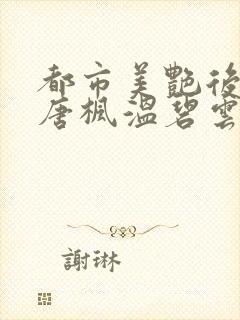 都市美艷後
唐楓溫碧雲
謝琳